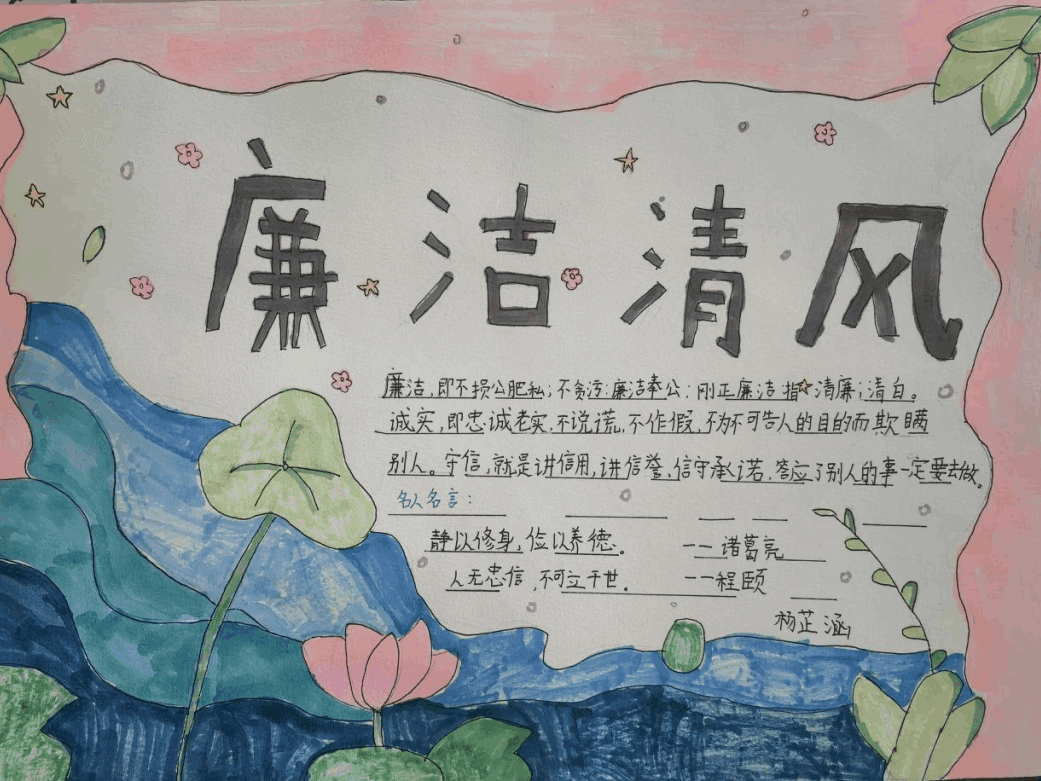 廉洁清风
廉洁,即不损公肥私;不贪污;廉洁奉公;刚正廉洁指清廉;清白。
诚实,即忠诚老实,不说谎,不作假,不为不可告人的目的而欺瞒
别人。守信,就是讲信用,讲信誉,信守承诺,答应了别人的事一定要去做。
名人名言:
静以修身,俭以养德。 ——诸葛亮
人无忠信,不可立于世。 ——程颐
杨芷涵